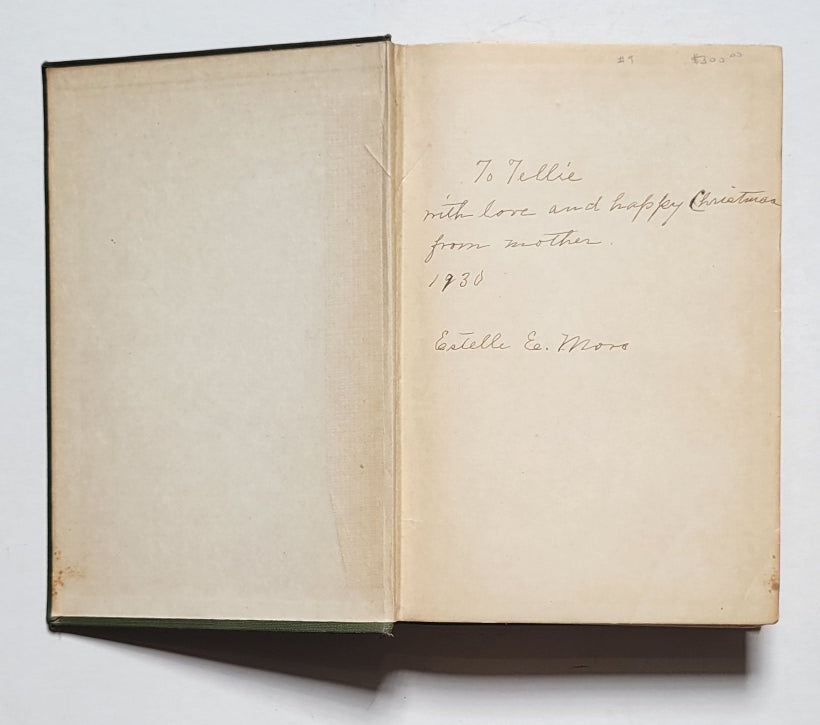 #9 $300.00
To Tellie
with love and happy Christmas
from mother.
1930
Estelle E. Moro